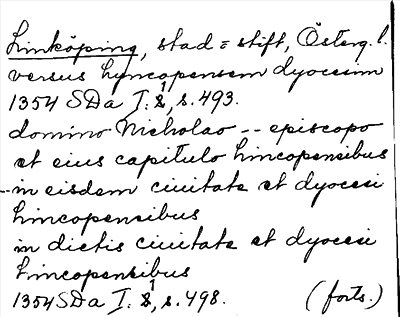 Linköping, stad = stift, Österg. l.
versus Lyncopensem dyocesim
1354 SDa I: 8¹, s. 493.
domino Nicholao -- episcopo
et eius capitulo Lincopensibus
-- in eisdem ciuitate et dyocesi
Lincopensibus
in dictis ciuitate et dyocesi
Lincopensibus
1354 SDa I: 8¹, s. 498. (forts.)